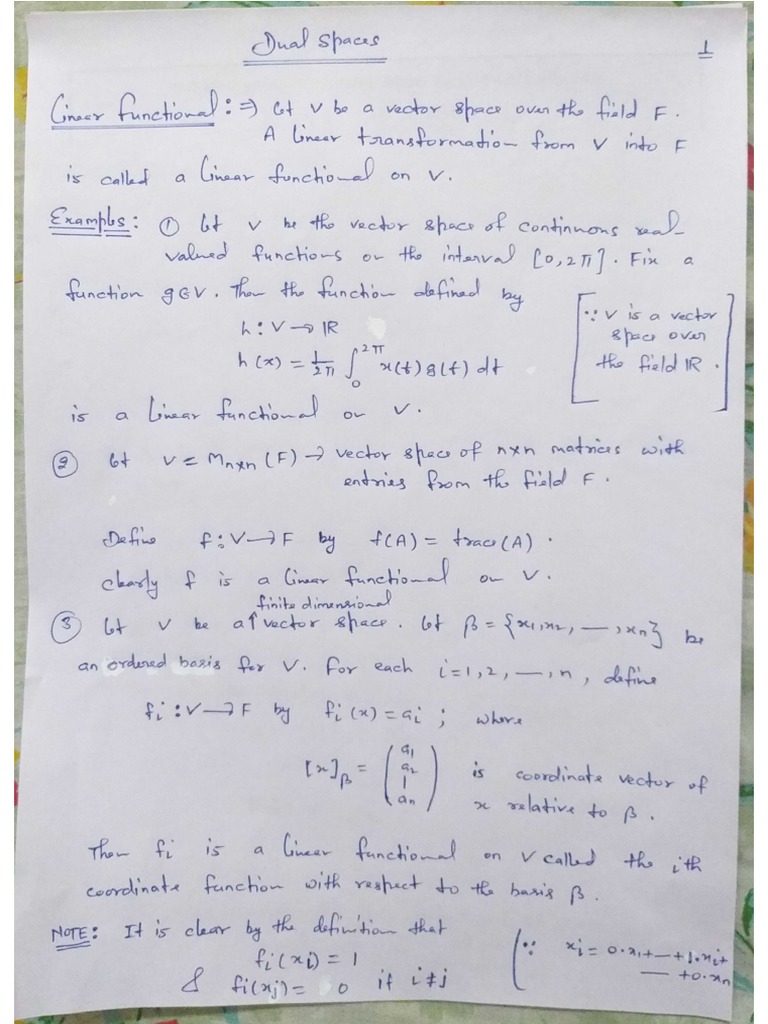 Dual Spaces
1
Linear functional: ⇒ Let V be a vector space over the field F.
A linear transformation from V into F
is called a linear functional on V.
Examples: ① Let V be the vector space of continuous real-
valued functions on the interval [0, 2π]. Fix a
function g∈V. Then the function defined by
h: V → IR
h(x) = 1/2π ∫₀^2π x(t) g(t) dt
[∵ V is a vector
space over
the field IR.]
is a linear functional on V.
② Let V = Mn×n (F) → vector space of n×n matrices with
entries from the field F.
Define f: V → F by f(A) = trace(A).
clearly f is a linear functional on V.
finite dimensional
③ Let V be a ↑ vector space. Let β = {x₁, x₂, —, xn} be
an ordered basis for V. For each i=1, 2, —, n, define
fi : V → F by fi(x) = ai ; where
[x]β = (a₁ a₂ | an) is coordinate vector of
x relative to β.
Then fi is a linear functional on V called the ith
coordinate function with respect to the basis β.
NOTE: It is clear by the definition that
fi(xi) = 1
& fi(xj) = 0 if i≠j
(∵ xi = 0·x₁+—+1·xi+
— +0·xn